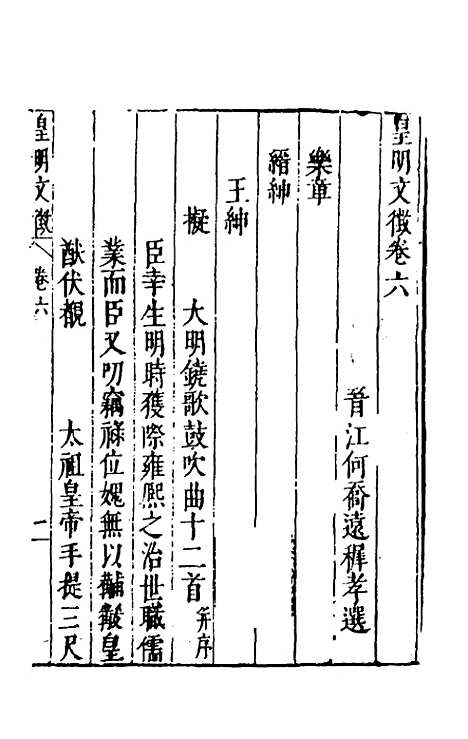 皇明文徵卷六
晉江何喬遠穉孝選
樂章
縉紳
王紳
擬 大明鐃歌鼓吹曲十二首 并序
臣幸生明時獲際雍熙之治世職儒
業而臣又叨竊祿位媿無以黼黻皇
猷伏覩 太祖皇帝手提三尺
皇明文徵 卷六 二